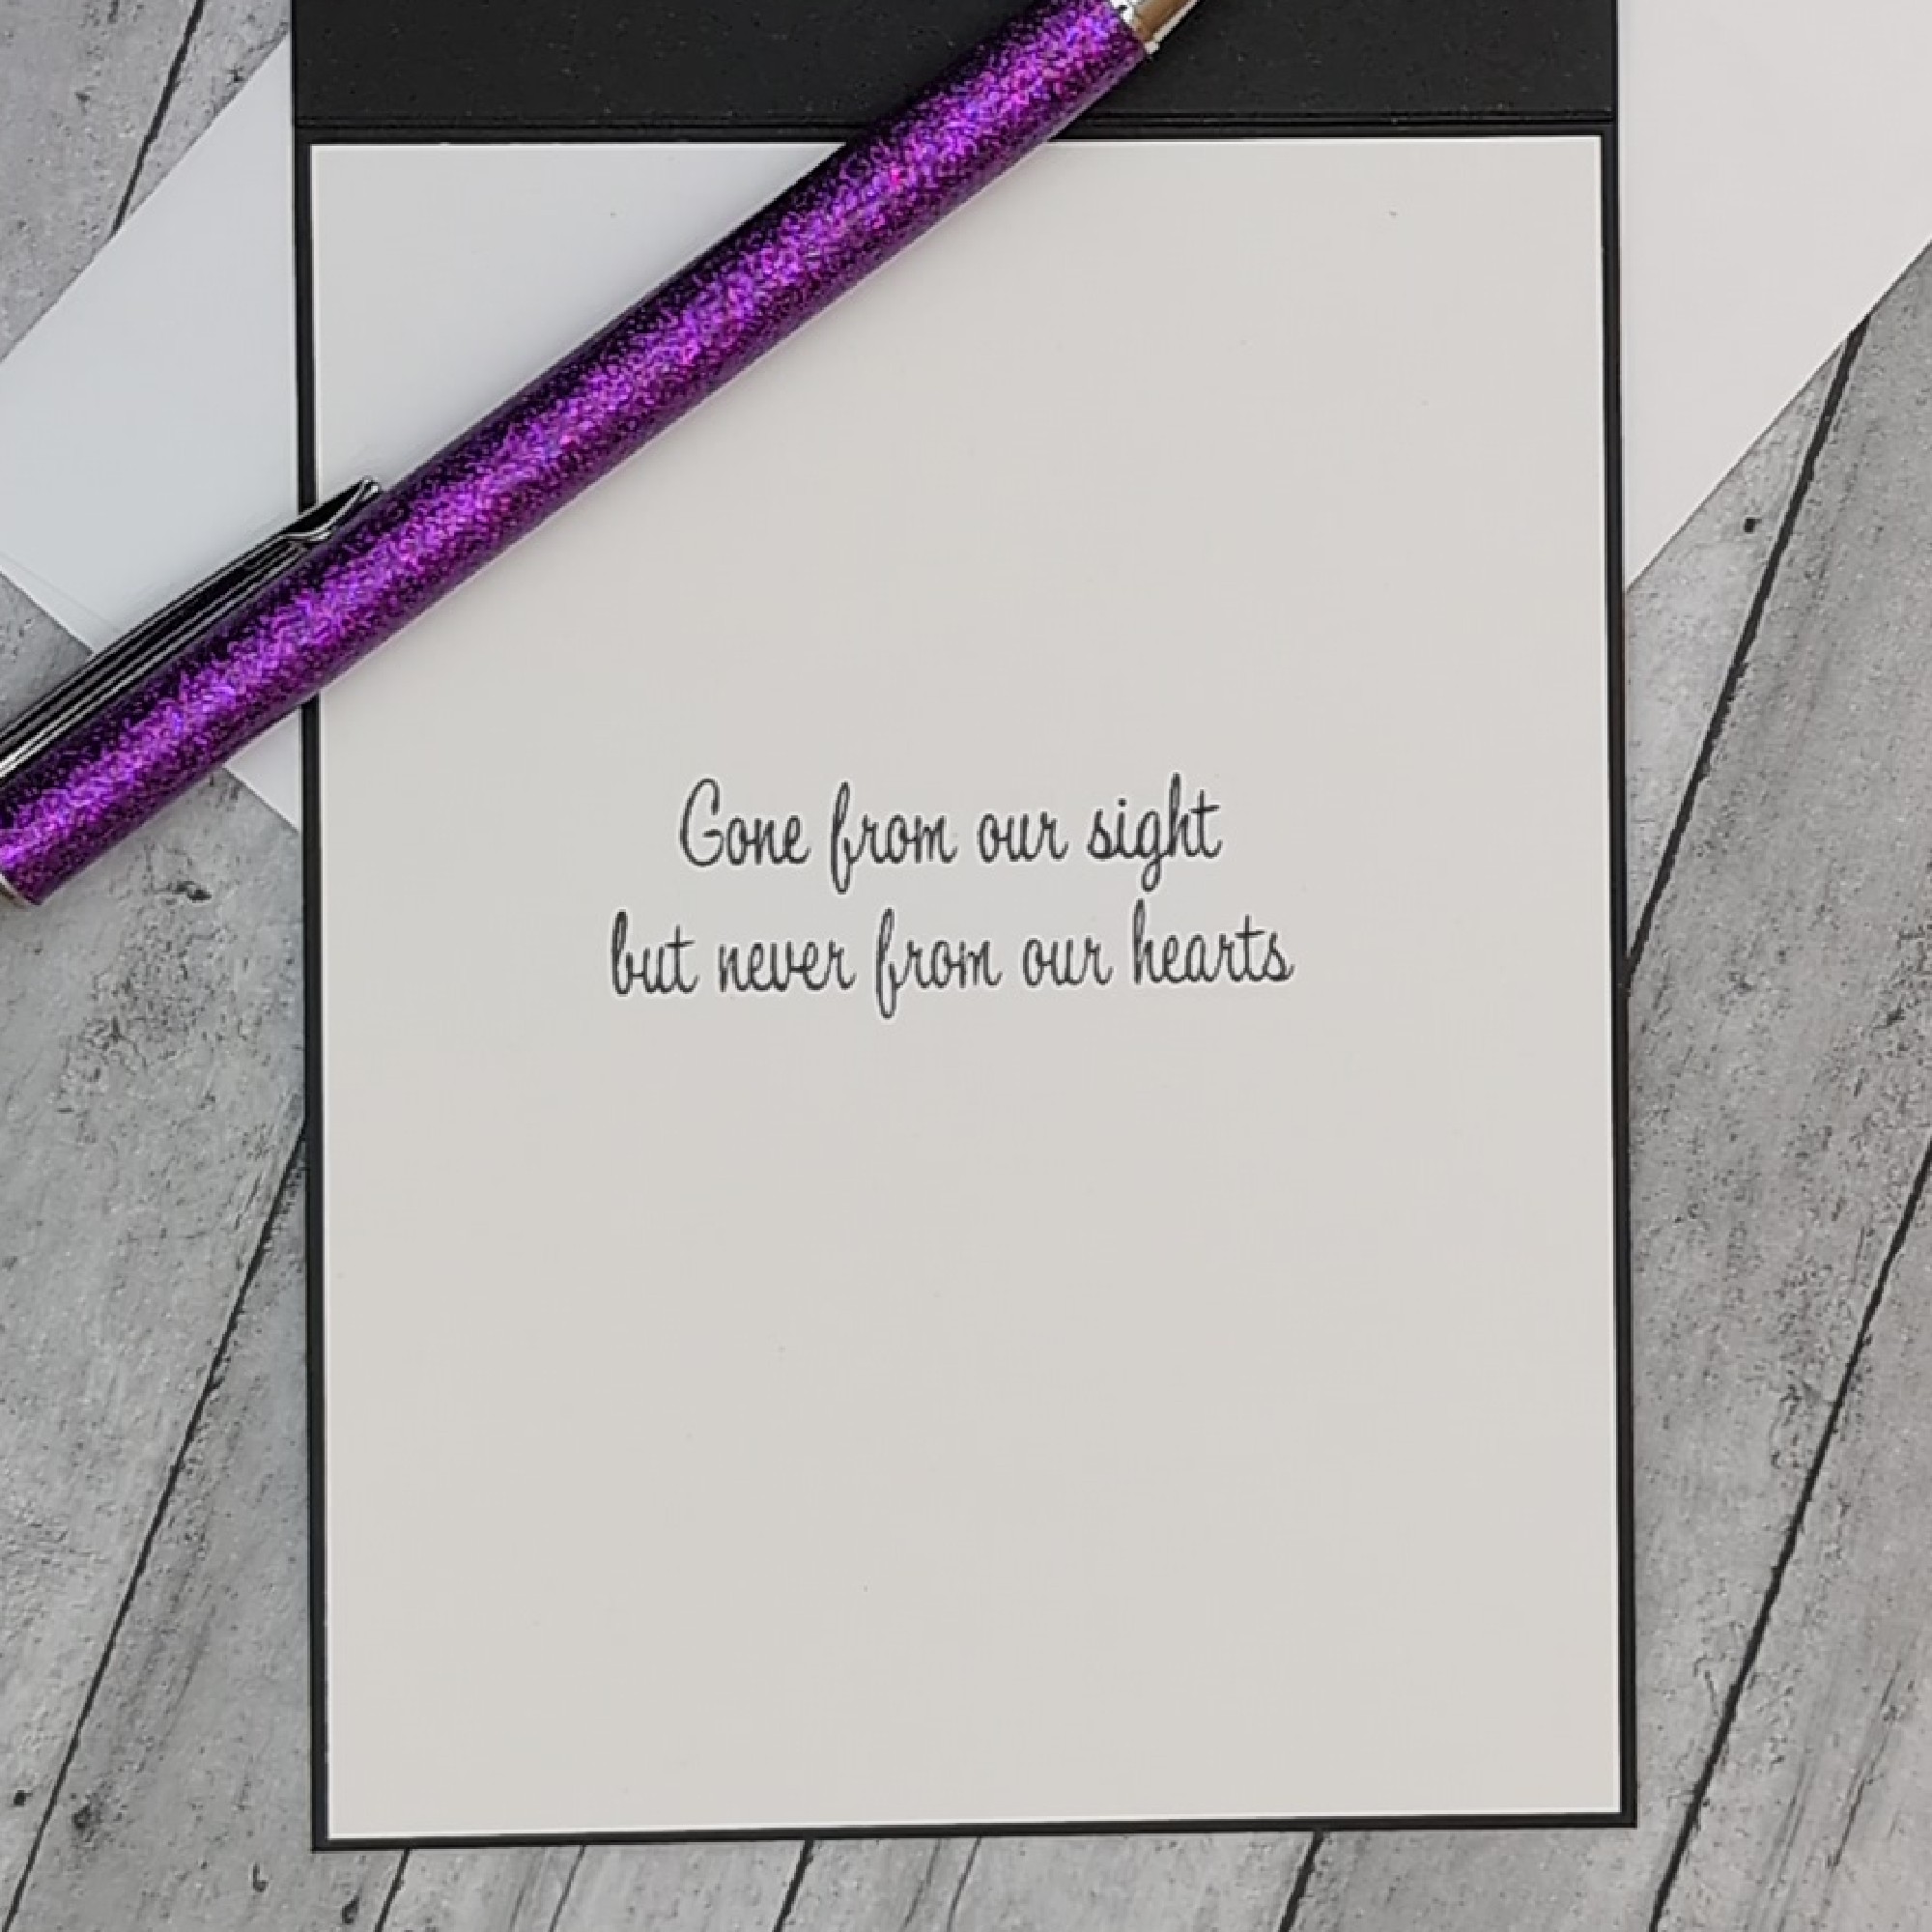 Gone from our sight
but never from our hearts